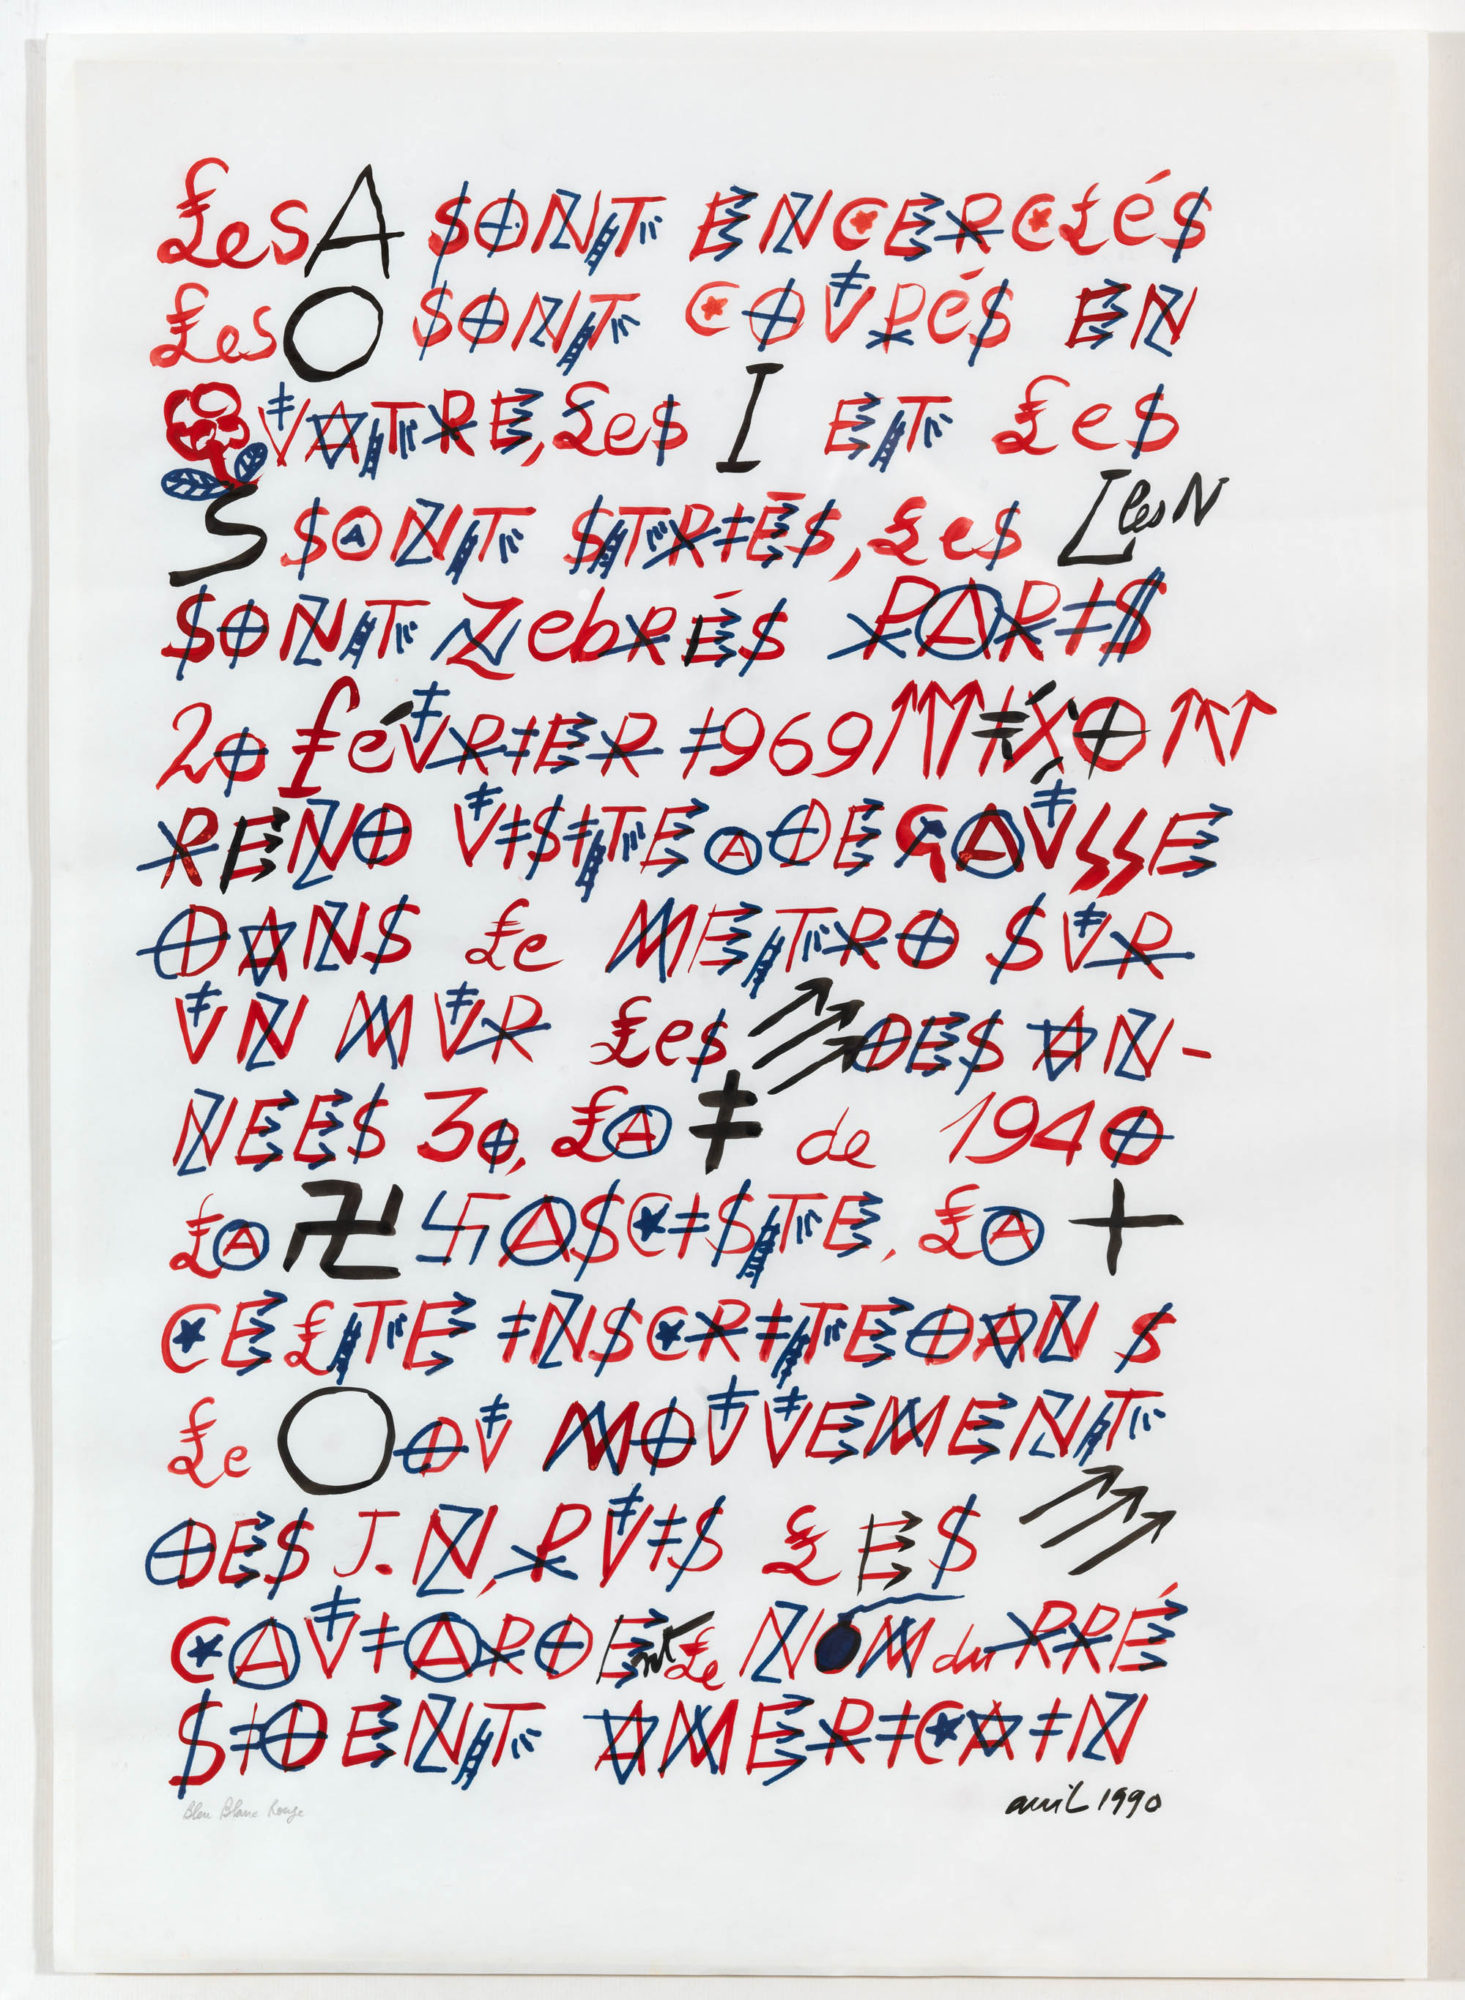 Les A SONT ENCERCLéS
Les O SONT COUPéS EN
QUATRE, Les I ET Les
S SONT STRIÉS, Les L les N
SONT ZebRÉS PARIS
20 féVRIER 1969 ↑↑↑ NIXON ↑↑↑
REND VISITE A DE GAULLE
DANS Le METRO SUR
UN MUR Les ↗↗↗ DES AN-
NEES 30, LA ‡ de 1940
LA 卍 FASCISTE, LA +
CELTE INSCRITE DANS
Le O DU MOUVEMENT
DES J.N, PUIS LES ↗↗↗
CAVIARDENT Le NOM du PRÉ
SIDENT AMERICAIN
avril 1990
Bleu Blanc Rouge